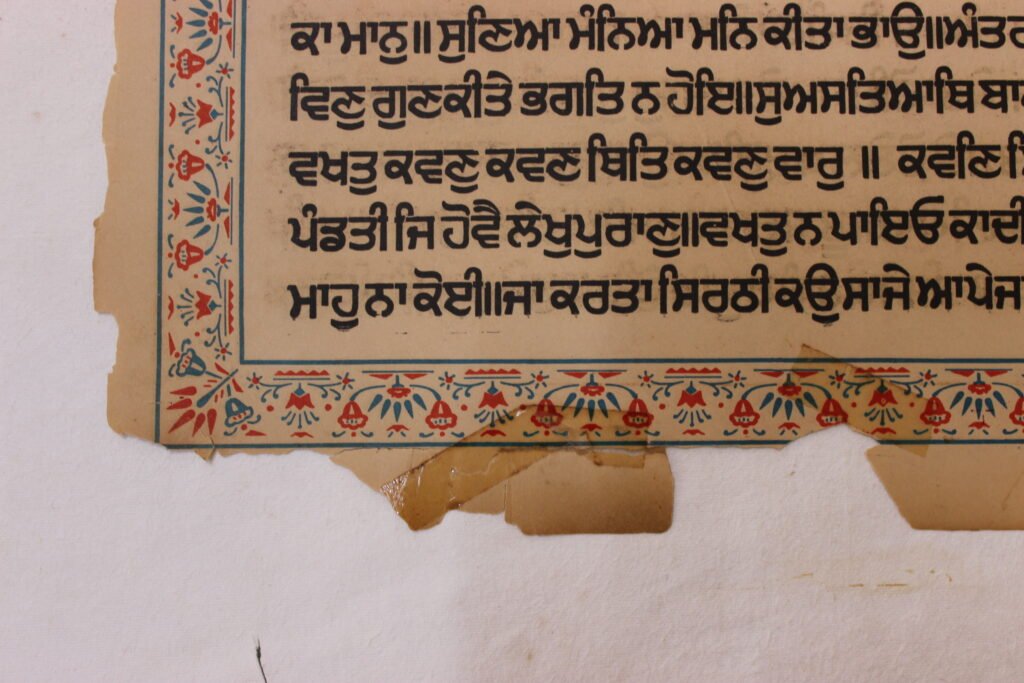 ਕਾ ਮਾਨੁ॥ ਸੁਣਿਆ ਮੰਨਿਆ ਮਨਿ ਕੀਤਾ ਭਾਉ॥ਅੰਤਰ
ਵਿਣੁ ਗੁਣਕੀਤੇ ਭਗਤਿ ਨ ਹੋਇ॥ਸੁਅਸਤਿਆਥਿ ਬਾ
ਵਖਤੁ ਕਵਣੁ ਕਵਣ ਥਿਤਿ ਕਵਣੁ ਵਾਰੁ ॥ ਕਵਣਿ
ਪੰਡਤੀ ਜਿ ਹੋਵੈ ਲੇਖੁਪੁਰਾਣੁ॥ਵਖਤੁ ਨ ਪਾਇਓ ਕਾਦੀ
ਮਾਹੁ ਨਾ ਕੋਈ॥ਜਾ ਕਰਤਾ ਸਿਰਠੀ ਕਉ ਸਾਜੇ ਆਪੇਜਾ